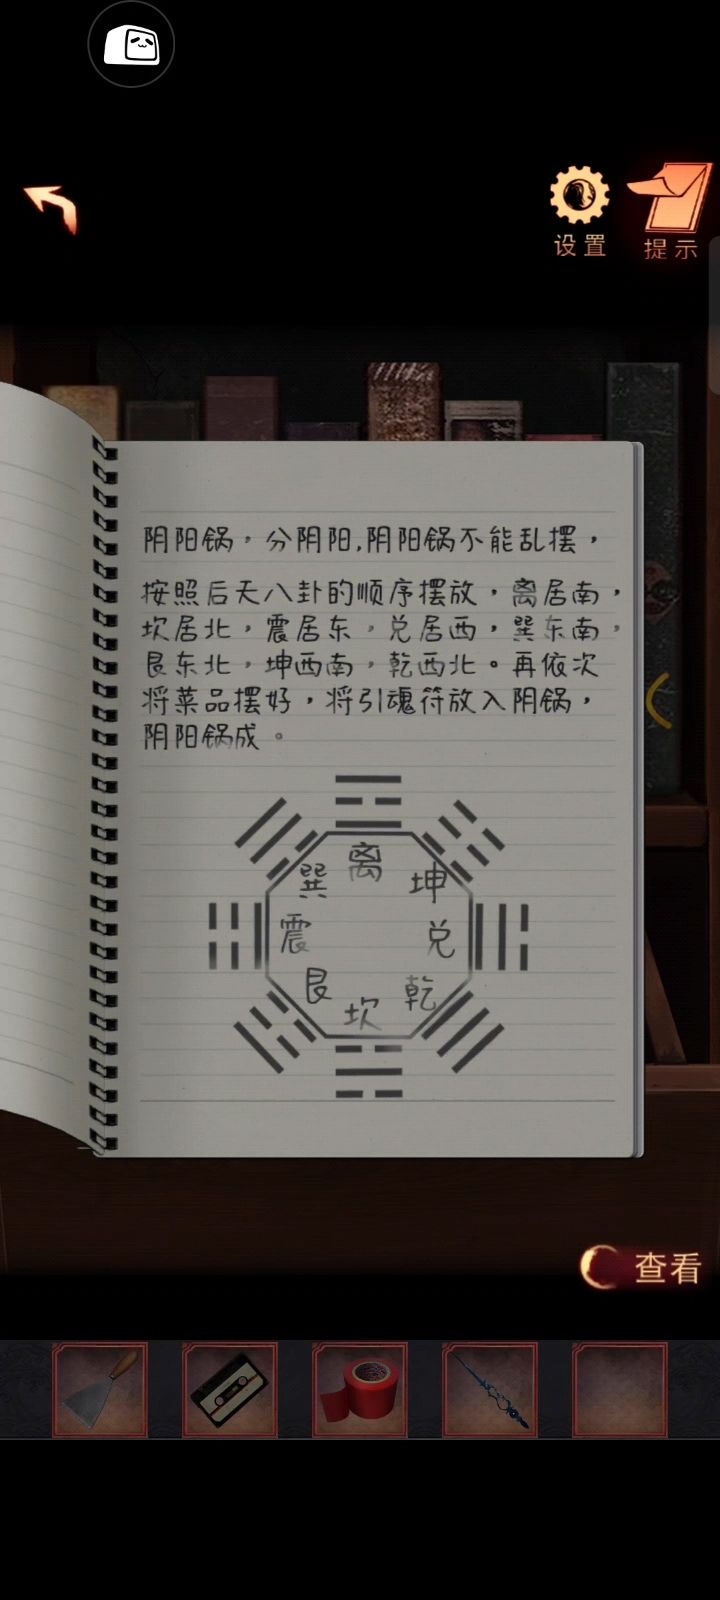 设置
提示
阴阳锅，分阴阳,阴阳锅不能乱摆，
按照后天八卦的顺序摆放，离居南，
坎居北，震居东，兑居西，巽东南，
艮东北，坤西南，乾西北。再依次
将菜品摆好，将引魂符放入阴锅，
阴阳锅成。
离
巽
坤
震
兑
艮
乾
坎
查看